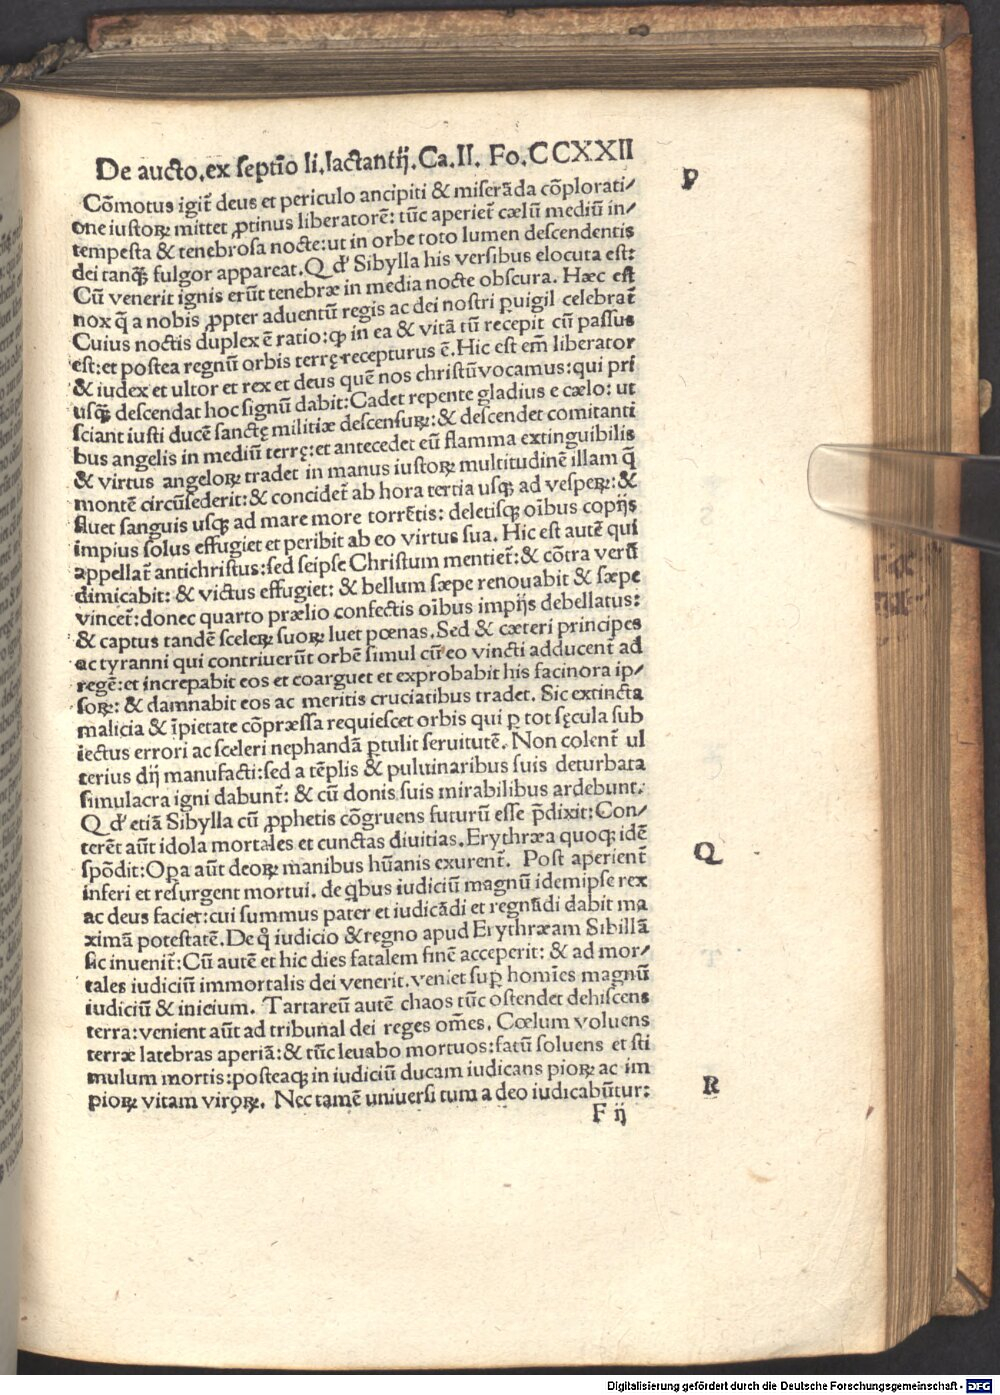 De aucto. ex septīo li. lactantij. Ca. II. Fo. CCXXII
P
Cōmotus igit̄ deus et periculo ancipiti & miserāda cōplorati/
one iustoꝝ mittet ꝓtinus liberatorē: tūc aperiet̄ cælū mediū in/
tempesta & tenebrosa nocte: ut in orbe toto lumen descendentis
dei tanꝗ̃ fulgor appareat. Q đ Sibylla his versibus elocuta est:
Cū venerit ignis erūt tenebræ in media nocte obscura. Hæc est
nox q̄ a nobis ꝓpter aduentū regis ac dei nostri ꝑuigil celebrat̄
Cuius noctis duplex ē ratio: ꝙ in ea & vitā tū recepit cū passus
est: et postea regnū orbis terrę recepturus ē. Hic est em̄ liberator
& iudex et ultor et rex et deus quē nos christū vocamus: qui pri
usꝗ̃ descendat hoc signū dabit: Cadet repente gladius e cælo: ut
sciant iusti ducē sanctę militiæ descensuꝝ: & descendet comitanti
bus angelis in mediū terrę: et antecedet eū flamma extinguibilis
& virtus angeloꝝ tradet in manus iustoꝝ multitudinē illam q̄
montē circūsederit: & concidet̄ ab hora tertia usq; ad vesperꝝ: &
fluet sanguis usq; ad mare more torrētis: deletisq; oībus copijs
impius solus effugiet et peribit ab eo virtus sua. Hic est autē qui
appellat̄ antichristus: sed seipse Christum mentiet̄: & cōtra verū
dimicabit: & victus effugiet: & bellum sæpe renouabit & sæpe
vincet̄: donec quarto prælio confectis oībus impijs debellatus:
& captus tandē sceleꝝ suoꝝ luet pœnas. Sed & cæteri principes
ac tyranni qui contriuerūt orbē simul cū eo vincti adducent̄ ad
regē: et increpabit eos et coarguet et exprobabit his facinora ip/
soꝝ: & damnabit eos ac meritis cruciatibus tradet. Sic extincta
malicia & īpietate cōpræssa requiescet orbis qui ꝑ tot sęcula sub
iectus errori ac sceleri nephandā ꝑtulit seruitutē. Non colent̄ ul
terius dij manufacti: sed a tēplis & puluinaribus suis deturbata
simulacra igni dabunt̄: & cū donis suis mirabilibus ardebunt.
Q đ etiā Sibylla cū ꝓphetis cōgruens futurū esse p̄dixit: Con/
terēt aūt idola mortales et cunctas diuitias. Erythræa quoq; idē
Q
spōdit: Opa aūt deoꝝ manibus hūanis exurent̄. Post aperient̄
inferi et resurgent mortui. de qͥbus iudiciū magnū idemipse rex
ac deus faciet: cui summus pater et iudicādi et regnādi dabit ma
ximā potestatē. De qͦ iudicio & regno apud Erythræam Sibillā
sic inuenit̄: Cū autē et hic dies fatalem finē acceperit: & ad mor/
tales iudiciū immortalis dei venerit. veniet suꝑ homīes magnū
iudiciū & inicium. Tartareū autē chaos tūc ostendet dehiscens
terra: venient aūt ad tribunal dei reges om̄es. Cœlum voluens
terræ latebras aperiā: & tūc leuabo mortuos: fatū soluens et sti
mulum mortis: posteaq; in iudiciū ducam iudicans pioꝝ ac im
R
pioꝝ vitam viroꝝ. Nec tamē universi tum a deo iudicabūtur:
F ij
Digitalisierung gefördert durch die Deutsche Forschungsgemeinschaft - DFG